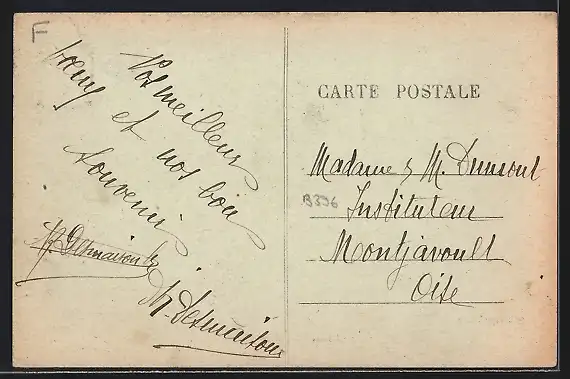 F
Vos meilleurs
vœux et nos bons
souvenirs
CARTE POSTALE
Madame & M. Dumont
B336
Instituteur
Montjavoult
Oise